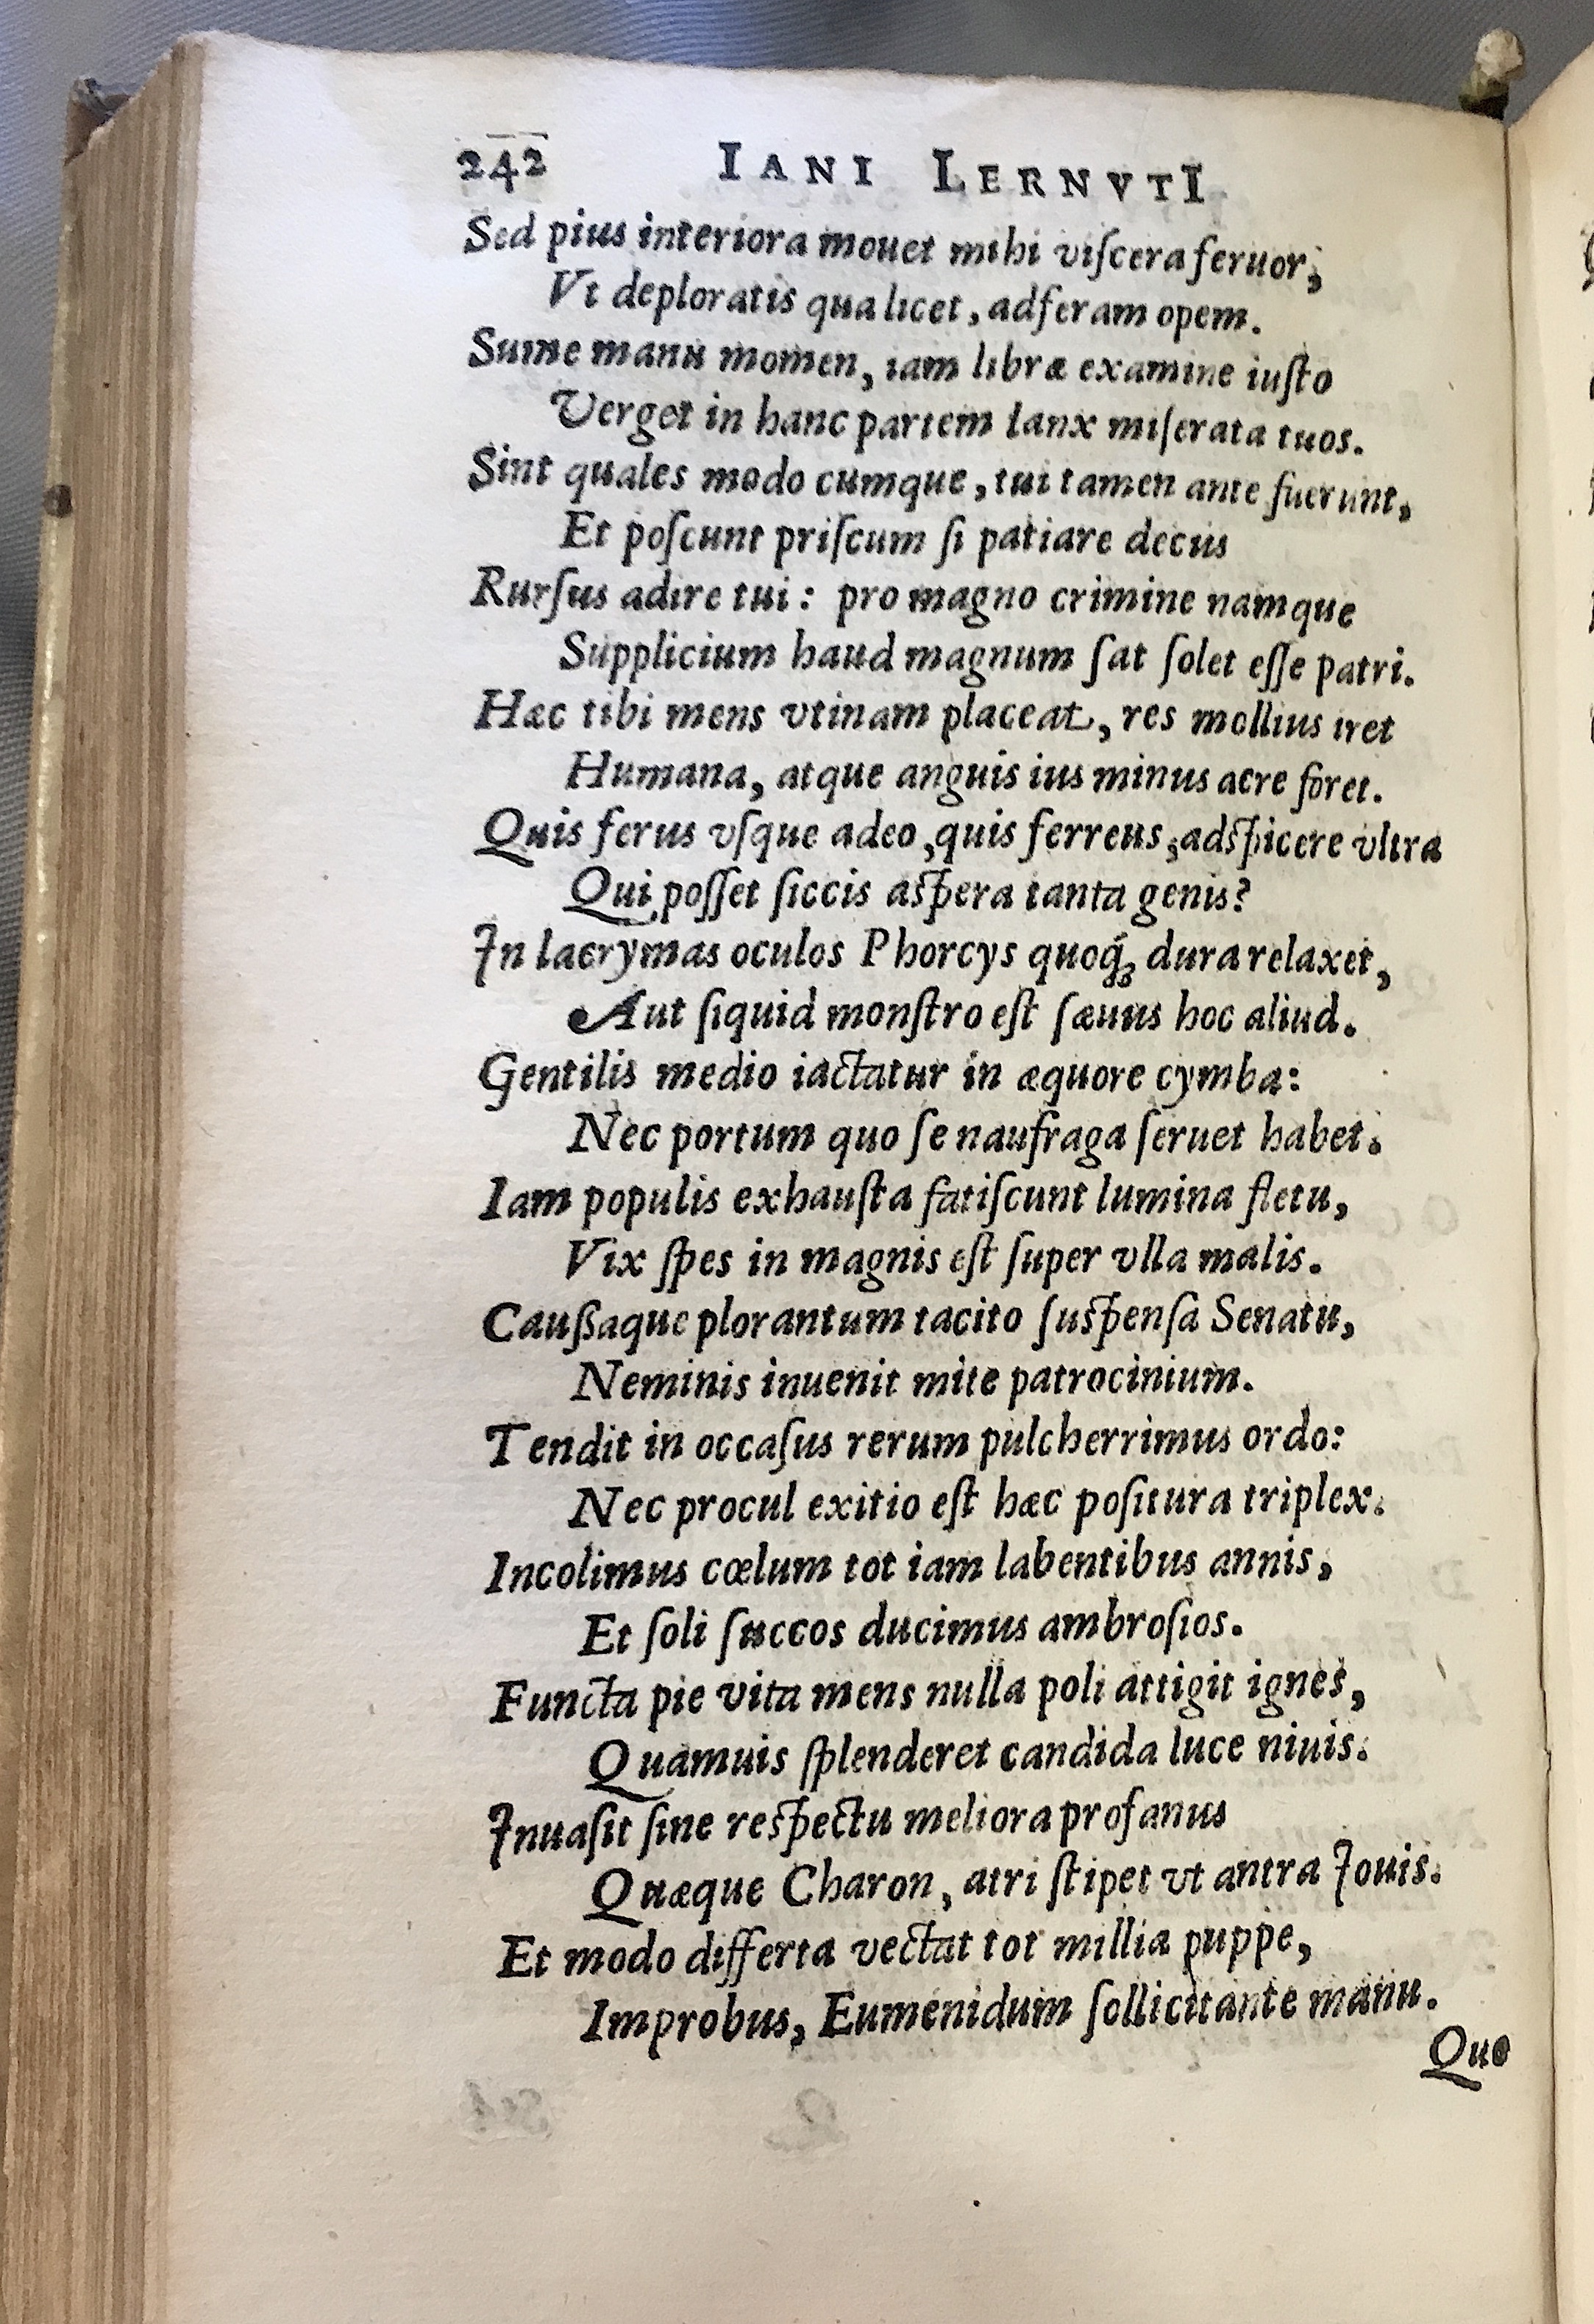 242 IANI LERNVTI
Sed pius interiora mouet mihi viſcera feruor;
Vt deploratis qua licet, adferam opem.
Sume manu momen, iam libræ examine iuſto
Verget in hanc partem lanx miſerata tuos.
Sint quales modo cumque, tui tamen ante fuerunt,
Et poſcunt priſcum ſi patiare decus
Rurſus adire tui: pro magno crimine namque
Supplicium haud magnum ſat ſolet eſſe patri.
Hæc tibi mens vtinam placeat, res mollius iret
Humana, atque anguis ius minus acre foret.
Quis ferus vſque adeo, quis ferreus, adſpicere vltra
Qui poſſet ſiccis aſpera tanta genis?
In lacrymas oculos Phorcys quoq́ꝫ dura relaxet,
Aut ſiquid monſtro eſt ſæuus hoc aliud.
Gentilis medio iactatur in æquore cymba:
Nec portum quo ſe naufraga ſeruet habet.
Iam populis exhauſta fatiſcunt lumina fletu,
Vix ſpes in magnis eſt ſuper vlla malis.
Cauſſaque plorantum tacito ſuſpenſa Senatu,
Neminis inuenit mite patrocinium.
Tendit in occaſus rerum pulcherrimus ordo:
Nec procul exitio eſt hæc poſitura triplex.
Incolimus cœlum tot iam labentibus annis,
Et ſoli ſuccos ducimus ambroſios.
Functa pie vita mens nulla poli attigit ignes,
Quamuis ſplenderet candida luce niuis.
Inuaſit ſine reſpectu meliora profanus
Quæque Charon, atri ſtipet vt antra Iouis.
Et modo differta vectat tot millia puppe,
Improbus, Eumenidum ſollicitante manu.
Quo